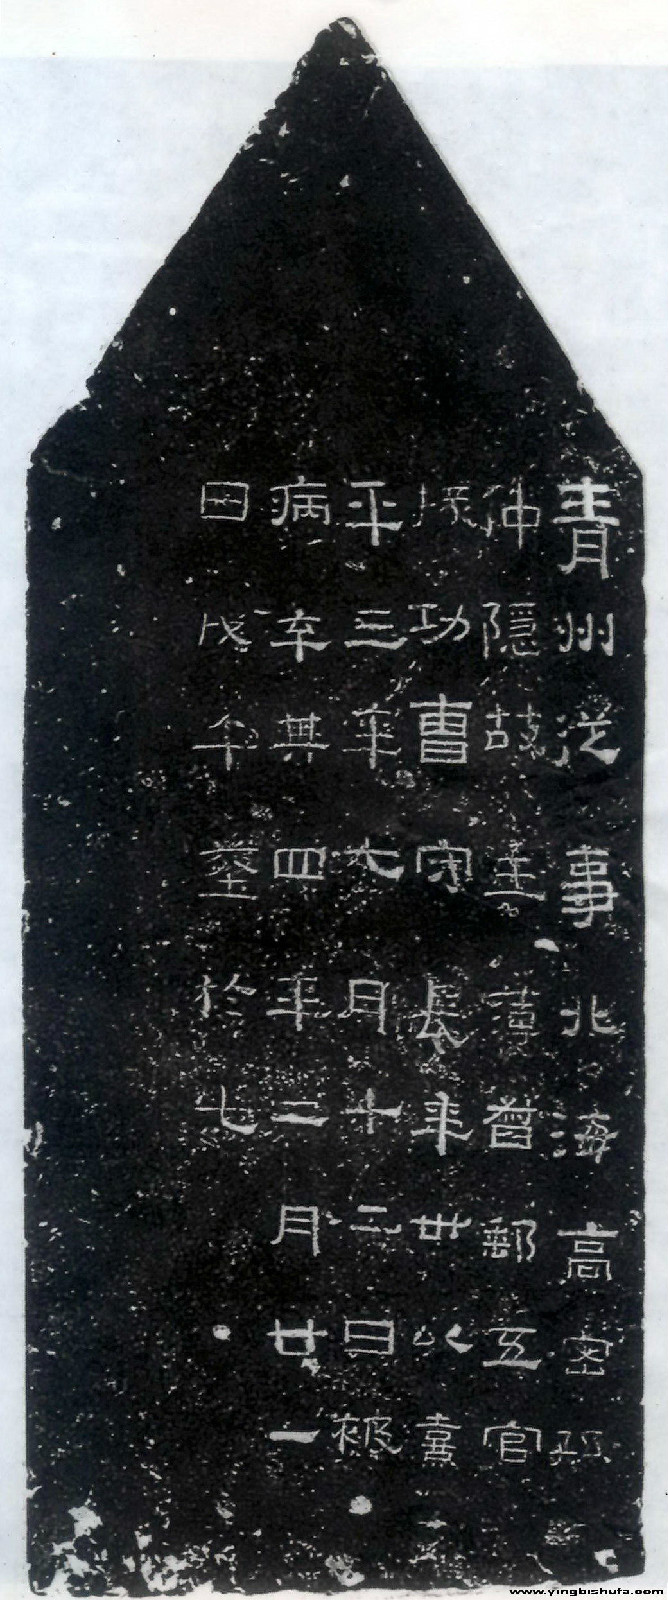 青州從事北海高密孫
仲隱故主簿督郵五官
掾功曹守長年卅以熹
平三年七月十二日被
病卒其四年二月廿一
日戊午葬於此
www.yingbishufa.com